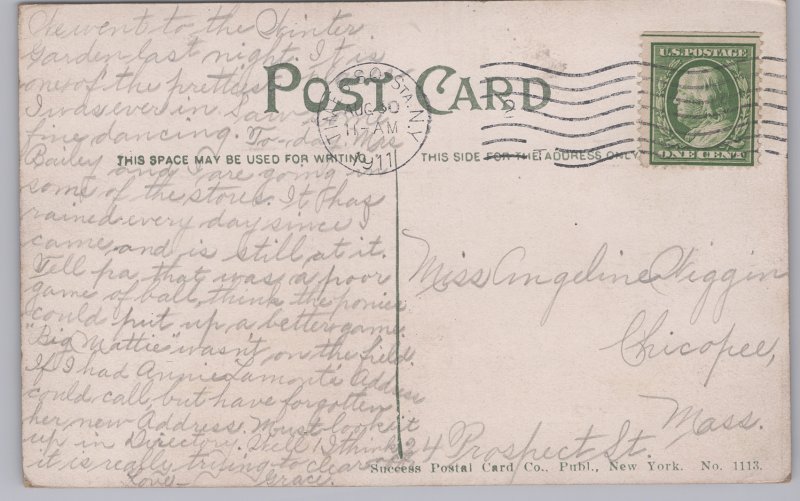 We went to the Winter
Garden last night. It is
one of the prettiest
I was ever in. Saw some
fine dancing. To-day Mrs
Bailey and I are going to
some of the stores. It has
rained every day since I
came and is still at it.
Tell pa that was a poor
game of ball, think the ponies
could put up a better game.
"Big Mattie" wasn't on the field.
If I had Annie Lamont's Address
could call, but have forgotten
her new Address. Must look it
up in Directory. Well I think
it is really trying to clear off
Love— Grace.
POST CARD
THIS SPACE MAY BE USED FOR WRITING
THIS SIDE FOR THE ADDRESS ONLY
TIMES SQ. STA. N.Y.
AUG 30
11-AM
1911
U.S. POSTAGE
ONE CENT
Miss Angeline Wiggin
Chicopee,
Mass.
24 Prospect St.
Success Postal Card Co., Publ., New York. No. 1113.